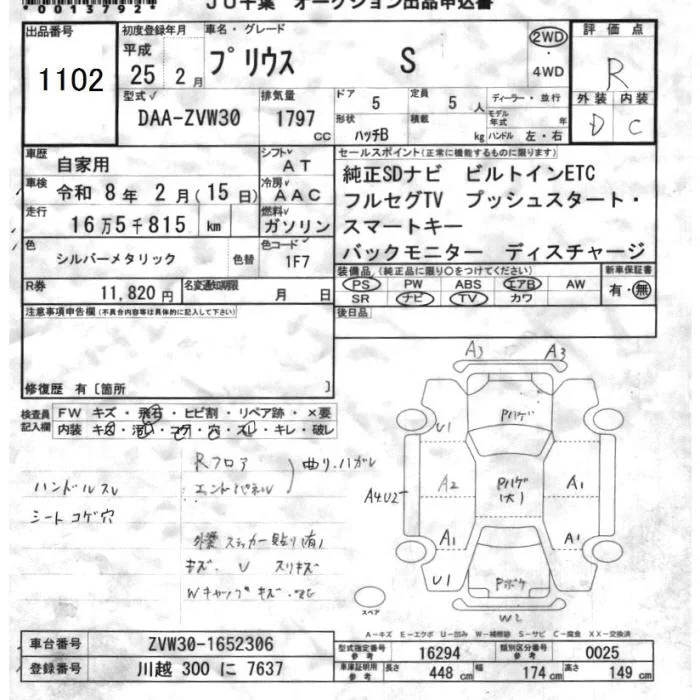 00137927
JU千葉 オークション出品申込書
出品番号 初度登録年月 車名・グレード 評価点
1102 平成 25年 2月 プリウス S 2WD ・ 4WD R
型式 排気量 ドア 5 定員 5人 ディーラー・並行 外装 内装
DAA-ZVW30 1797cc 形状 ハッチB 積載 kg モデル年式 年 ハンドル 左・右 D C
車歴 自家用 シフト AT セールスポイント(正常に機能するものに限ります)
車検 令和 8年 2月(15日) 冷房 AAC 純正SDナビ ビルトインETC
走行 16万5千815 km 燃料 ガソリン フルセグTV プッシュスタート・
スマートキー
色 シルバーメタリック 色替 色コード 1F7 バックモニター ディスチャージ
R券 11,820円 名変通知期限 月 日 装備品(純正品に限り○をつけてください) 新車保証書
PS PW ABS エアB AW 有・無
SR ナビ TV カワ
注意事項申告欄(不具合内容等は具体的に記入して下さい) 後日品
修復歴 有〔箇所 〕
検査員記入欄 FW キズ・飛石・ヒビ割・リペア跡・×要
内装 キズ・汚れ・コゲ・穴・スレ・キレ・破レ
ハンドルスレ
シートコゲ穴
Rフロア
エンドパネル 曲り.ハガレ
外装 ステッカー貼り(有)
キズ. U スリキズ
Wキャップキズ.
A3 A3
Pハゲ
U1
A2 Pハゲ(大) A1
A4U2
A1 A1
U1 Pボケ
W2
スペア
A-キズ E-エクボ U-凹み W-補修跡 S-サビ C-腐食 XX-交換済
車台番号 ZVW30-1652306 型式指定番号 参考 16294 類別区分番号 参考 0025
登録番号 川越 300 に 7637 車庫証明用 参考 長さ 448cm 幅 174cm 高さ 149cm